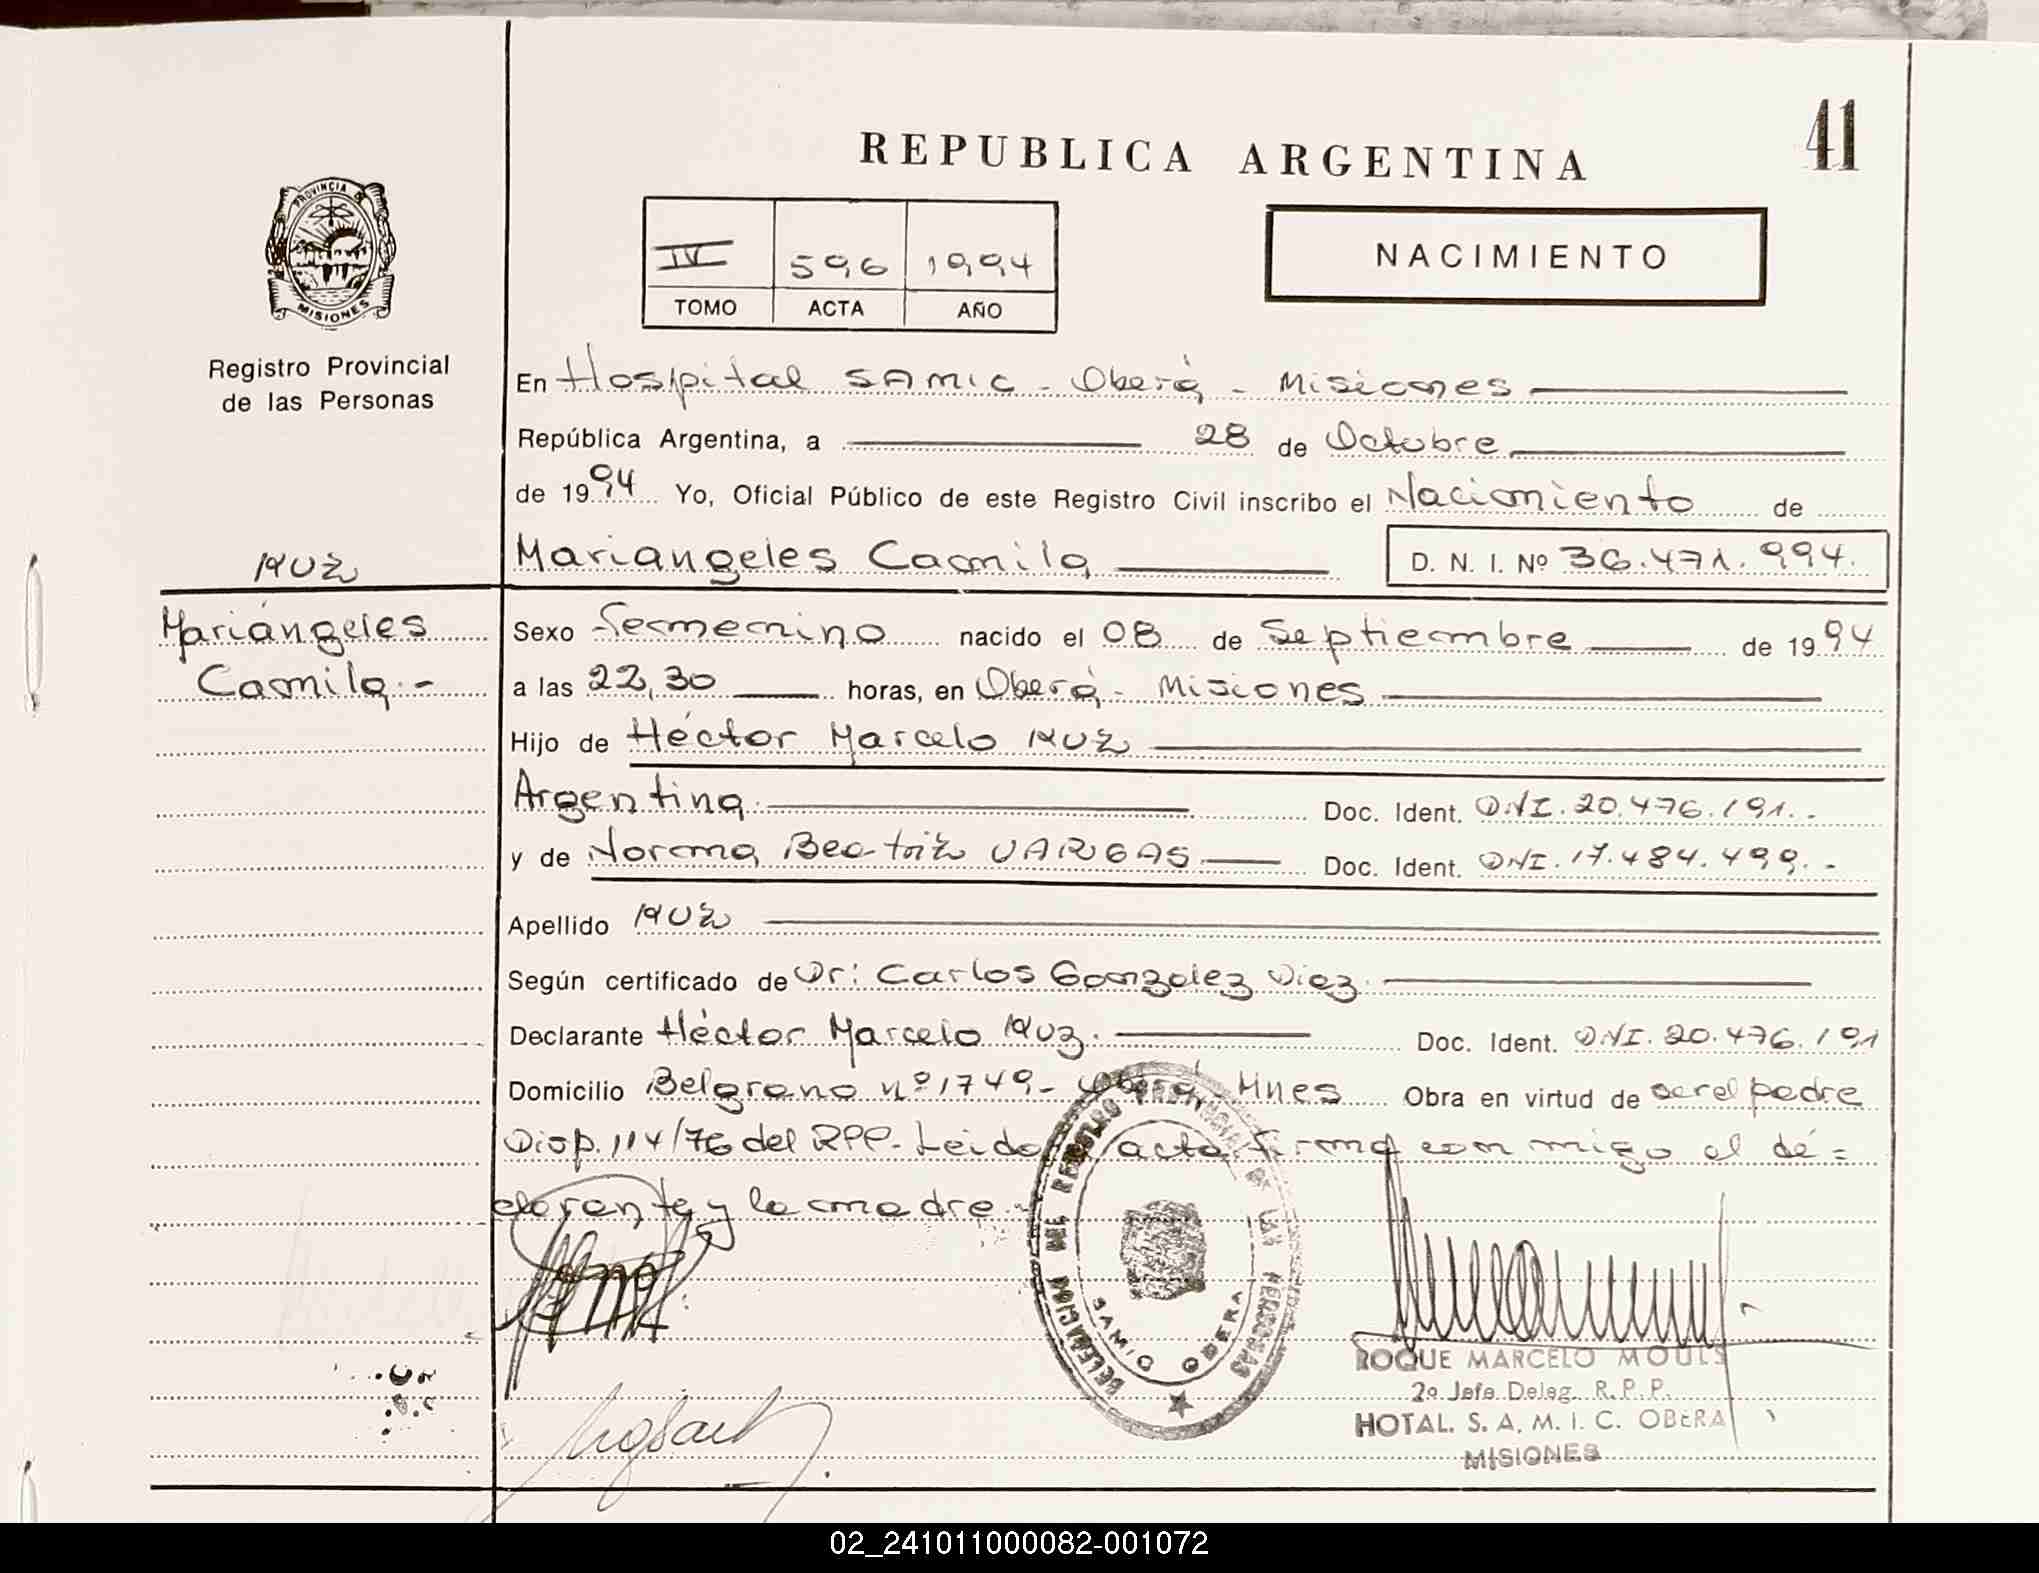 REPUBLICA ARGENTINA
41
PROVINCIA DE
MISIONES
Registro Provincial
de las Personas
IV 596 1994
TOMO ACTA AÑO
NACIMIENTO
En Hospital SAMIC - Oberá - Misiones
República Argentina, a 28 de Octubre
de 1994 Yo, Oficial Público de este Registro Civil inscribo el Nacimiento de
Mariangeles Camila D. N. I. Nº 36.471.994.
Mariángeles
Camila.-
Sexo Femenino nacido el 08 de Septiembre de 1994
a las 22,30 horas, en Oberá - Misiones
Hijo de Héctor Marcelo
Argentina. Doc. Ident. DNI. 20.476.191.-
y de Norma Beatriz VARGAS Doc. Ident. DNI. 17.484.499.-
Apellido
Según certificado de Dr: Carlos Gonzalez Diez.
Declarante Héctor Marcelo Doc. Ident. DNI. 20.476.191
Domicilio Belgrano nº 1749- Oberá Mnes Obra en virtud de ser el padre
Disp. 114/76 del RPP- Leido acta firma con migo el de=
clarante y la madre.-
DELEGACION DEL REGISTRO PROVINCIAL DE LAS PERSONAS
SAMIC OBERA
ROQUE MARCELO
2º Jefe Deleg. R. P. P.
HOTAL. S. A. M. I. C. OBERA
MISIONES
02_241011000082-001072